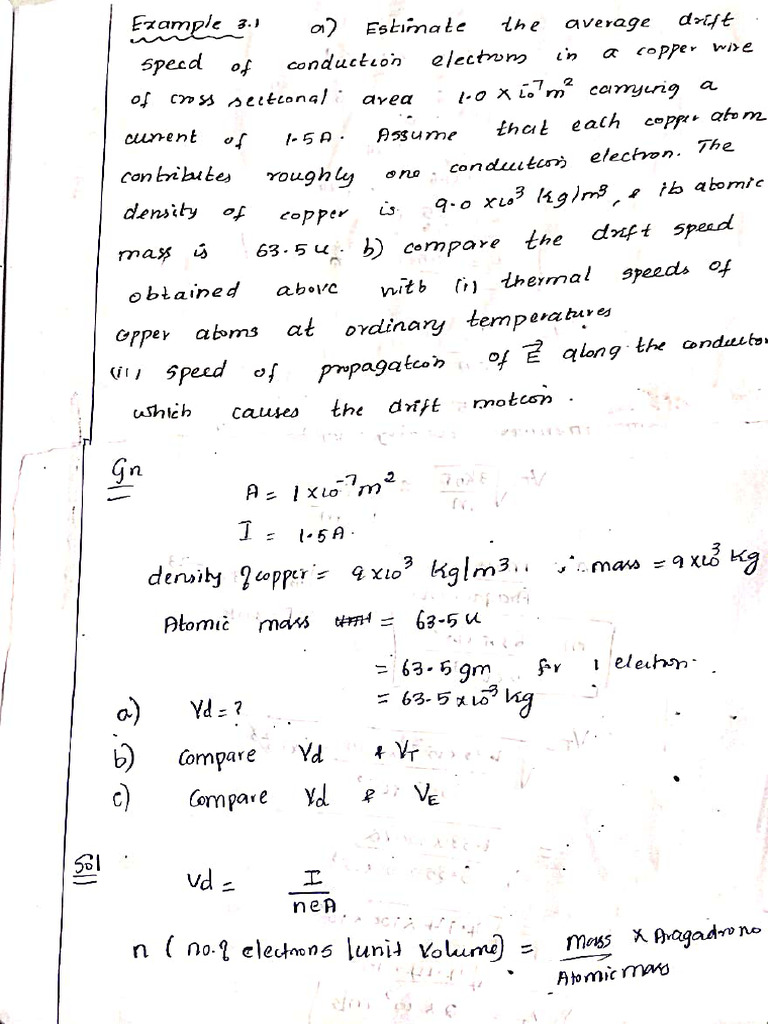 Example 3.1 a) Estimate the average drift
speed of conduction electrons in a copper wire
of cross sectional area 1.0 x 10⁻⁷ m² carrying a
current of 1.5A. Assume that each copper atom
contributes roughly one conduction electron. The
density of copper is 9.0 x 10³ kg/m³, & its atomic
mass is 63.5 u. b) compare the drift speed
obtained above with (i) thermal speeds of
copper atoms at ordinary temperatures
(ii) speed of propagation of E⃗ along the conductor
which causes the drift motion.
Gn
A = 1 x 10⁻⁷ m²
I = 1.5A.
density of copper = 9 x 10³ kg/m³ ∴ mass = 9 x 10³ kg
Atomic mass = 63.5 u
= 63.5 gm for 1 electron.
= 63.5 x 10⁻³ kg
a) Vd = ?
b) Compare Vd & VT
c) Compare Vd & VE
Sol
Vd = I / neA
n (no. of electrons / unit volume) = Mass / Atomic mass x Avagadro no